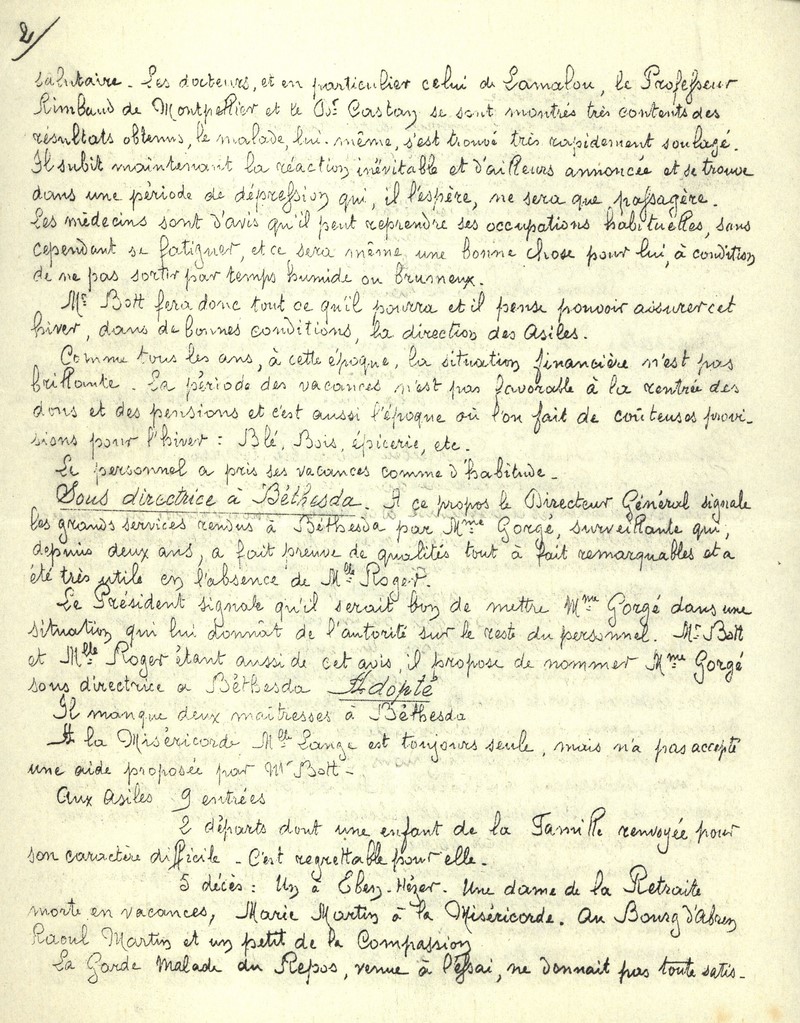 2/
salutaire. Les docteurs, et en particulier celui de Lamalou, le Professeur
Rimbaud de Montpellier et le Dr Castan se sont montrés très contents des
résultats obtenus, le malade, lui-même, s'est trouvé très rapidement soulagé.
Il subit maintenant la réaction inévitable et d'ailleurs annoncée et se trouve
dans une période de dépression qui, il l'espère, ne sera que passagère.
Les médecins sont d'avis qu'il peut reprendre ses occupations habituelles, sans
cependant se fatiguer, et ce sera même une bonne chose pour lui, à condition
de ne pas sortir par temps humide ou brumeux.
Mr Bott fera donc tout ce qu'il pourra et il pense pouvoir assurer cet
hiver, dans de bonnes conditions, la direction des Asiles.
Comme tous les ans, à cette époque, la situation financière n'est pas
brillante. La période des vacances n'est pas favorable à la rentrée des
dons et des pensions et c'est aussi l'époque où l'on fait de coûteuses provi-
sions pour l'hiver : Blé, Bois, épicerie, etc.
Le personnel a pris ses vacances comme d'habitude.
Sous directrice à Béthesda. A ce propos le Directeur Général signale
les grands services rendus à Béthesda par Mme Gorgé, surveillante qui,
depuis deux ans, a fait preuve de qualités tout à fait remarquables et a
été très utile en l'absence de Mlle Roger.
Le Président signale qu'il serait bon de mettre Mme Gorgé dans une
situation qui lui donnât de l'autorité sur le reste du personnel. Mr Bott
et Mlle Roger étant aussi de cet avis, il propose de nommer Mme Gorgé
sous directrice a Béthesda Adopté
Il manque deux maîtresses à Béthesda
A la Miséricorde Mlle Lange est toujours seule, mais n'a pas accepté
une aide proposée par Mr Bott -
Aux Asiles 9 entrées
2 départs dont une enfant de la Famille renvoyée pour
son caractère difficile - C'est regrettable pour elle.
5 décès : Un à Eben-Hézer. Une dame de la Retraite
morte en vacances, Marie Martin à la Miséricorde. Au Bourg d'Abren
Raoul Martin et un petit de la Compassion
La Garde Malade du Repos, venue à l'essai, ne donnait pas toute satis-